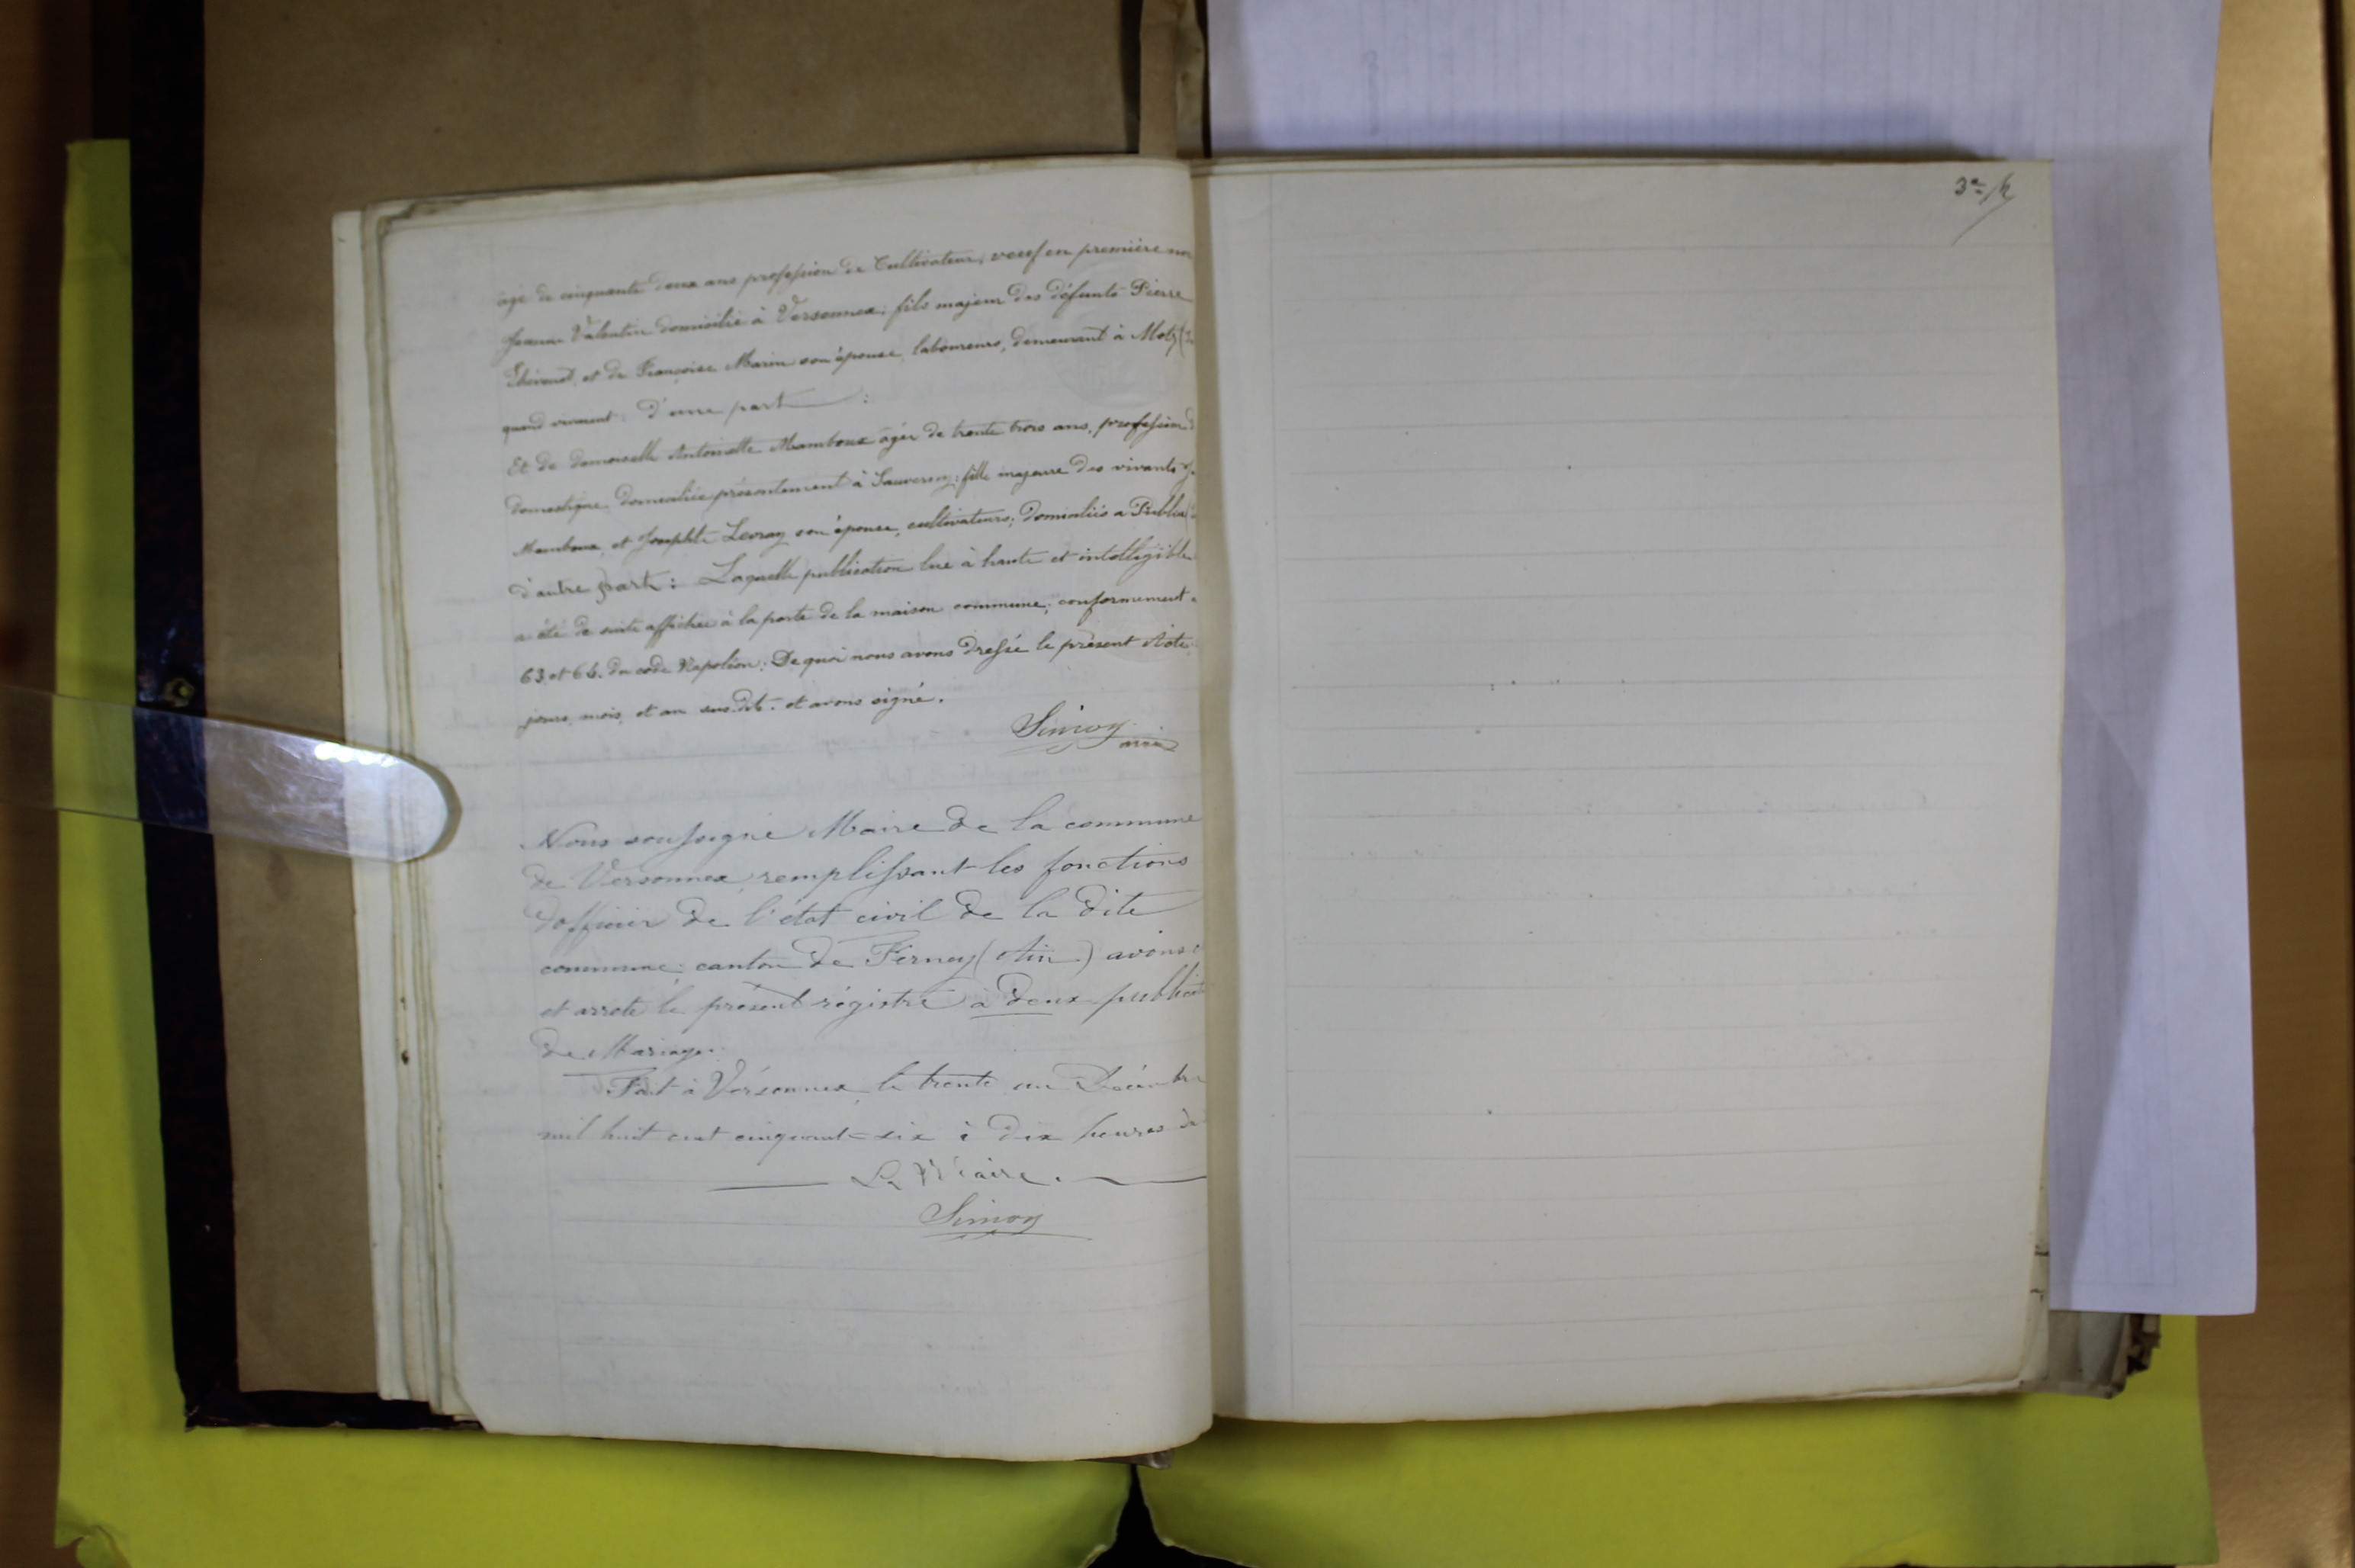 âgé de cinquante deux ans profession de Cultivateur, veuf en première
Jeanne Valentin domicilié à Versonnex; fils majeur des défunts Pierre
et de Françoise Marin son épouse, laboureurs, demeurant à
quand vivaient. D'une part :
Et de demoiselle Antoinette Mamboux âgée de trente trois ans, profession
domestique domiciliée présentement à Sauverny; fille majeure des vivants
Mamboux, et Josephte son épouse, cultivateurs; domiciliés a
d'autre part: Laquelle publication lue à haute et intelligible
a été de suite affichée à la porte de la maison commune; conformement
63 et 64. du code Napoléon; De quoi nous avons dressé le présent Acte
jours, mois, et an sus-dit. et avons signé.
Simon
Nous soussigné Maire de la commune
de Versonnex, remplissant les fonctions
d'officier de l'état civil de la dite
commune; canton de Ferney (Ain) avons
et arrete le présent régistre à deux
de Mariage.
Fait à Versonnex, le trente un Décembre
mil huit cent cinquant-six à dix heures
Le Maire.
Simon
3e